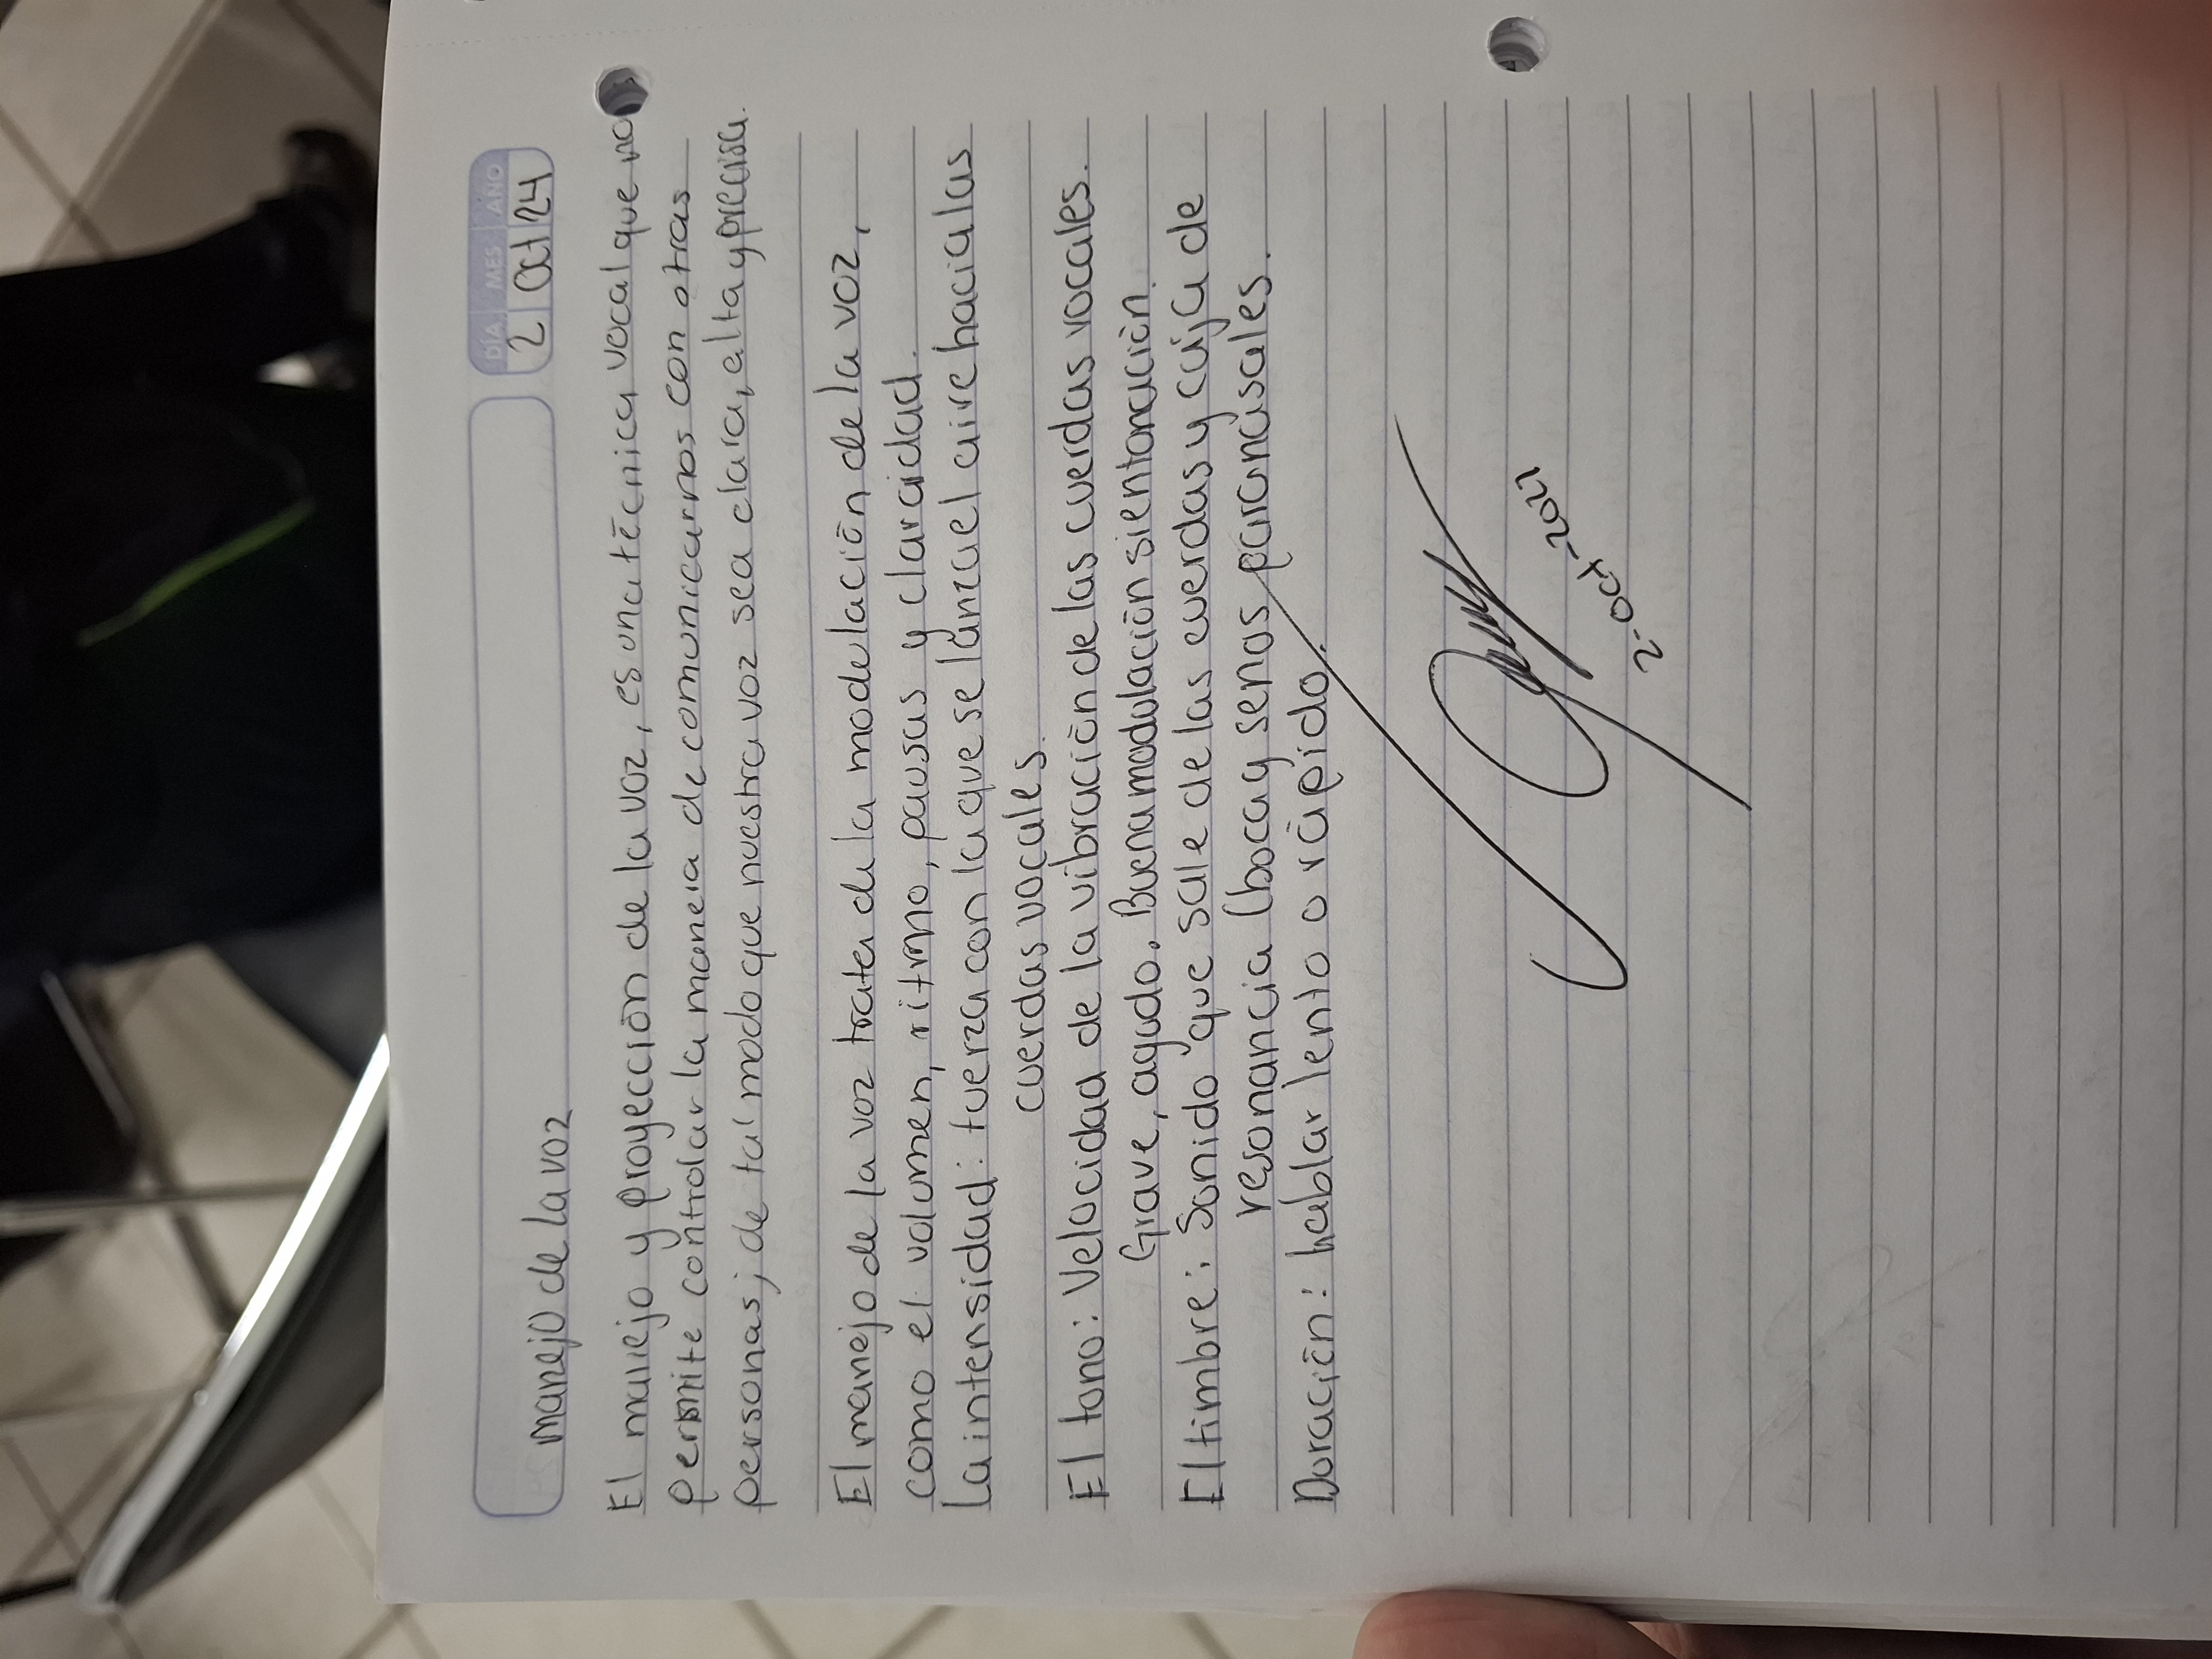 DÍA MES AÑO
2 Oct 24
Manejo de la voz
El manejo y proyección de la voz, es una técnica vocal que no
permite controlar la manera de comunicarnos con otras
personas; de tal modo que nuestra voz sea clara, alta y precisa.
El manejo de la voz trata de la modelación de la voz,
como el volumen, ritmo, pausas y claridad.
La intensidad: fuerza con la que se lanza el aire hacia las
cuerdas vocales.
El tono: Velocidad de la vibración de las cuerdas vocales.
Grave, agudo. Buena modulación si entonación.
El timbre: Sonido que sale de las cuerdas y caja de
resonancia (boca y senos paranasales.
Duración: hablar lento o rápido.
2-Oct-2024